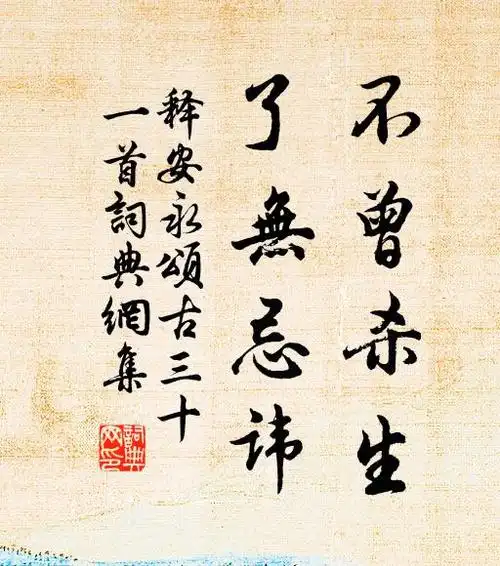 不曾杀生
了無忌讳
释安永頌古三十
一首詞典網集
詞典
网印